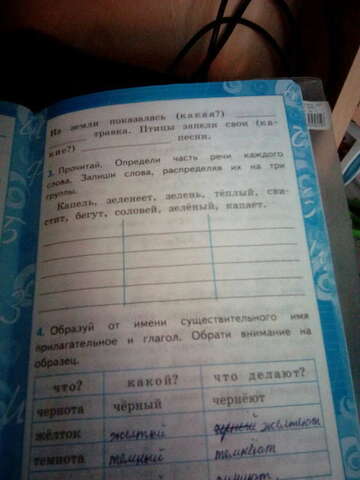 Из земли показалась (какая?)
травка. Птицы запели свои (ка-
кие?) песни.
3. Прочитай. Определи часть речи каждого
слова. Запиши слова, распределяя их на три
группы.
Капель, зеленеет, зелень, тёплый, сви-
стит, бегут, соловей, зелёный, капает.
4. Образуй от имени существительного имя
прилагательное и глагол. Обрати внимание на
образец.
что? какой? что делают?
чернота чёрный чернеют
жёлток желтый желтеют
темнота темный темнеют